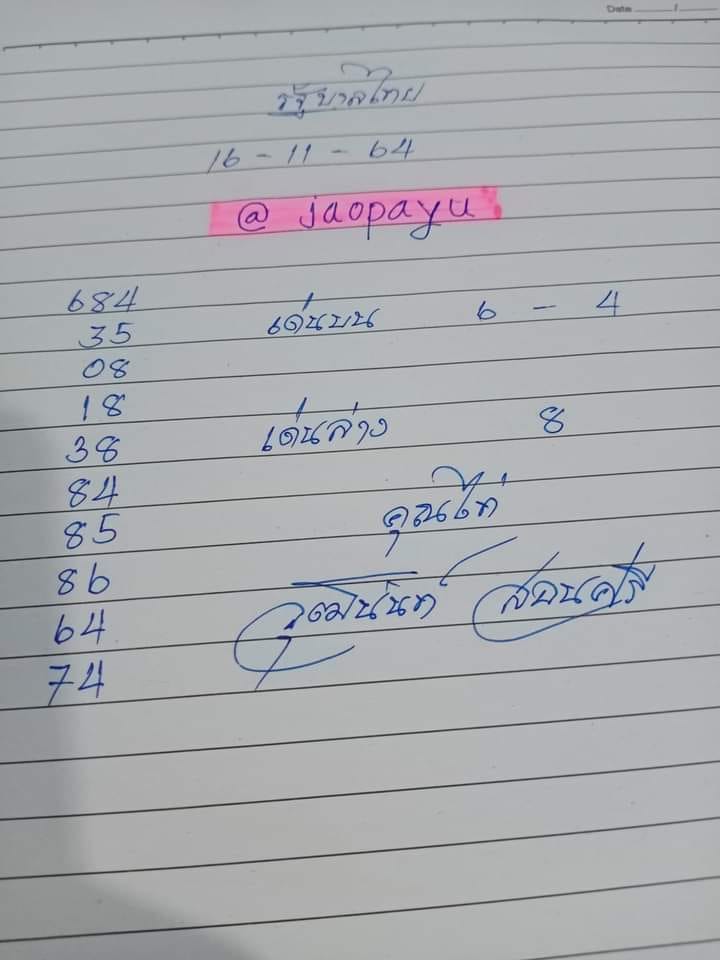 Date / /
รัฐบาลไทย
16 - 11 - 64
@ jaopayu
684
35 เด่นบน 6 - 4
08
18
38 เด่นล่าง 8
84
85 คุณไก่
86
64 วุฒินันท์ สอนศรี
74